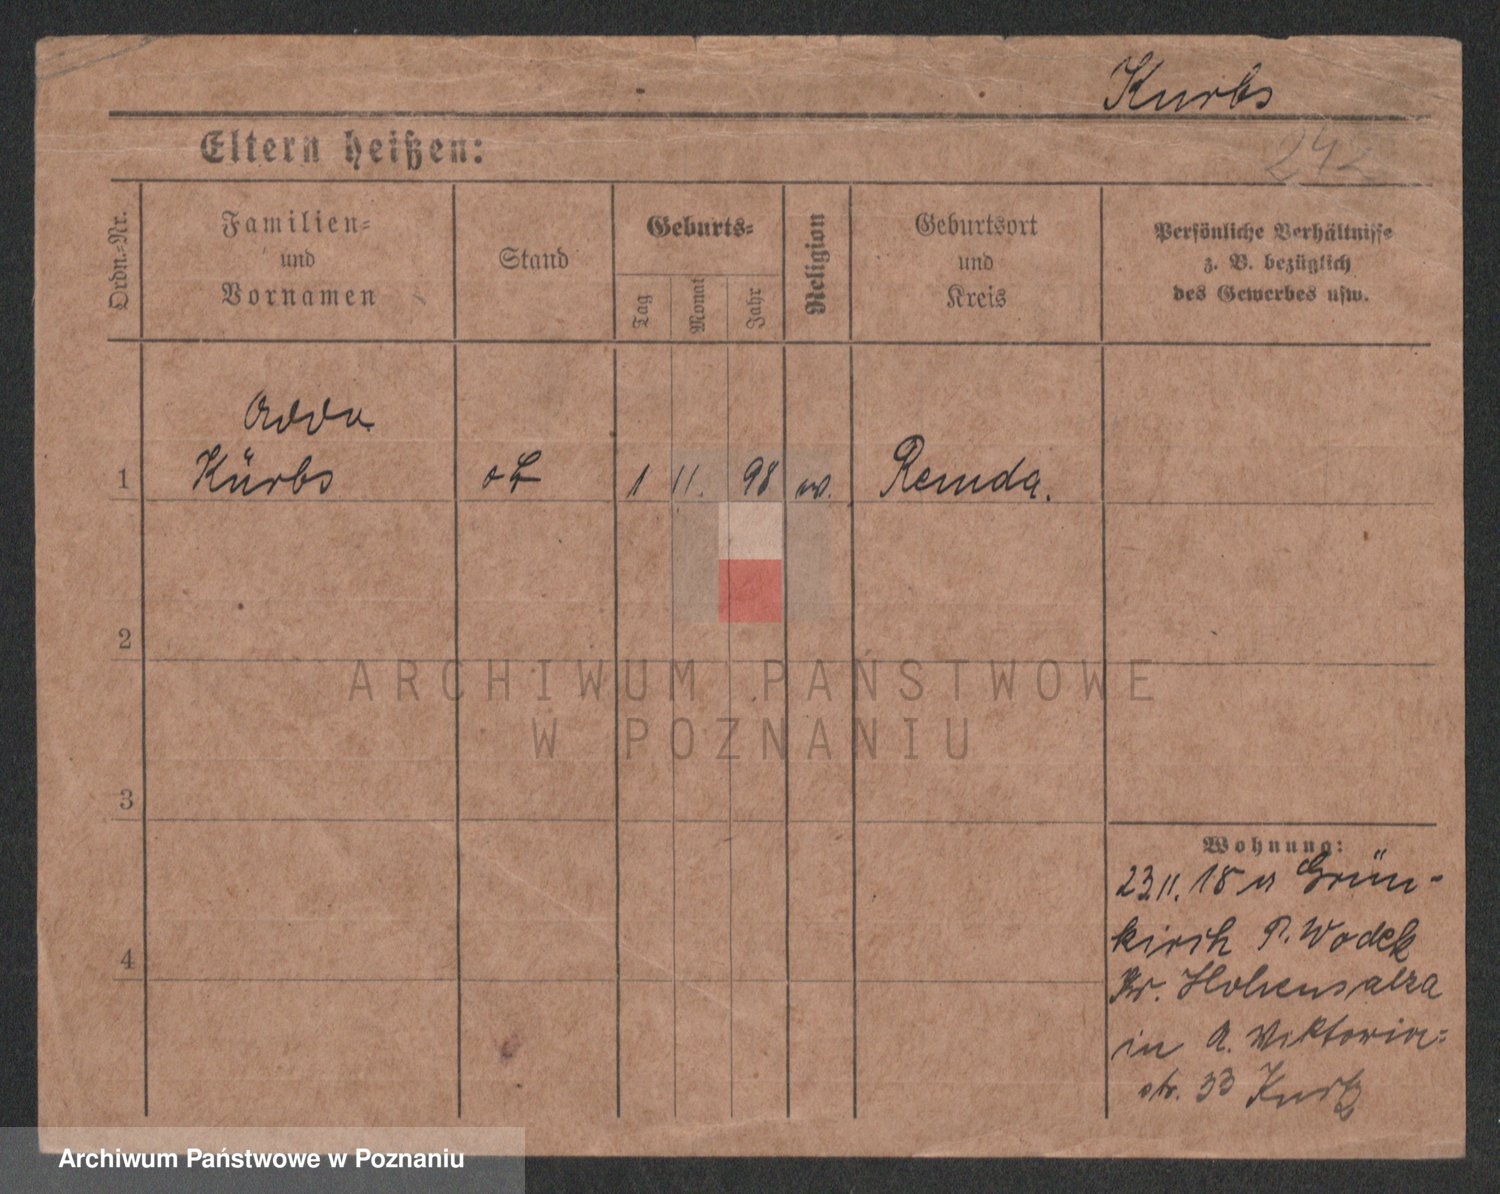 Kurbs
Eltern heißen:
242
Ordn.-Nr.
Familien-
und
Vornamen
Stand
Geburts-
Tag
Monat
Jahr
Religion
Geburtsort
und
Kreis
Persönliche Verhältnisse
z. B. bezüglich
des Gewerbes usw.
1
Kürbs
1
11.
98
Remda.
2
3
4
ARCHIWUM PAŃSTWOWE
W POZNANIU
Wohnung:
23.11.18 Grün-
kirch P. Wodek
Kr. Hohensalza
in A. Viktoria-
str. 33 Kurtz
Archiwum Państwowe w Poznaniu